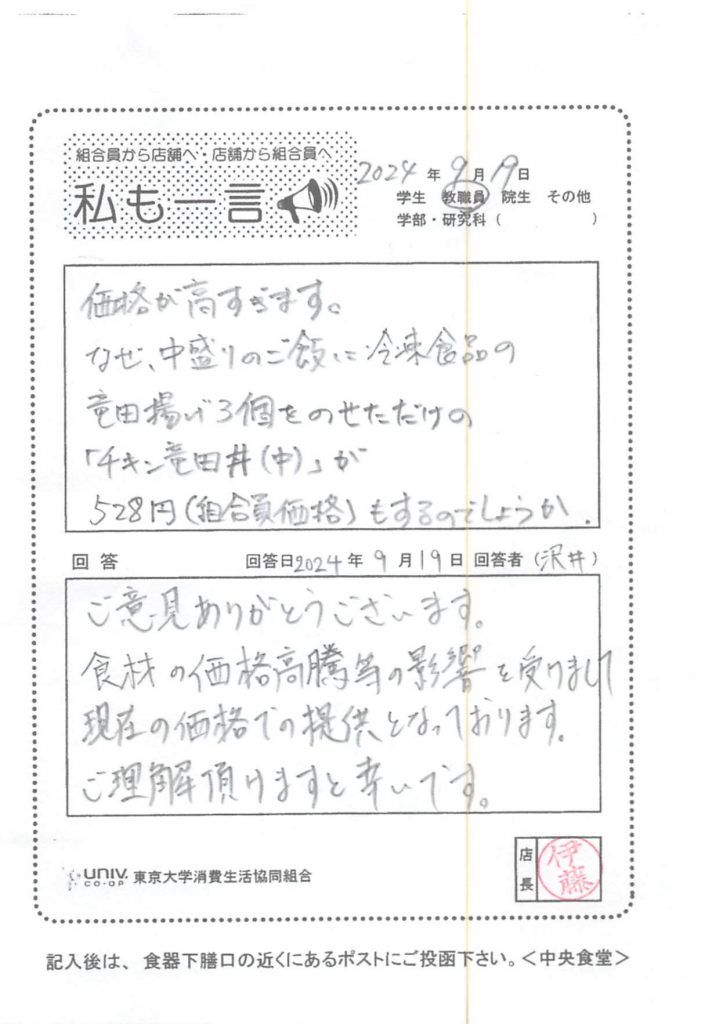 組合員から店舗へ・店舗から組合員へ
私も一言
2024年9月19日
学生 教職員 院生 その他
学部・研究科( )
価格が高すぎます。
なぜ、中盛りのご飯に冷凍食品の
竜田揚げ3個をのせただけの
「チキン竜田丼(中)」が
528円(組合員価格)もするのでしょうか.
回答 回答日2024年9月19日 回答者(沢井)
ご意見ありがとうございます。
食材の価格高騰等の影響を受けまして
現在の価格での提供となっております。
ご理解頂けますと幸いです。
UNIV.
CO-OP 東京大学消費生活協同組合
店長 伊藤
記入後は、食器下膳口の近くにあるポストにご投函下さい。<中央食堂>